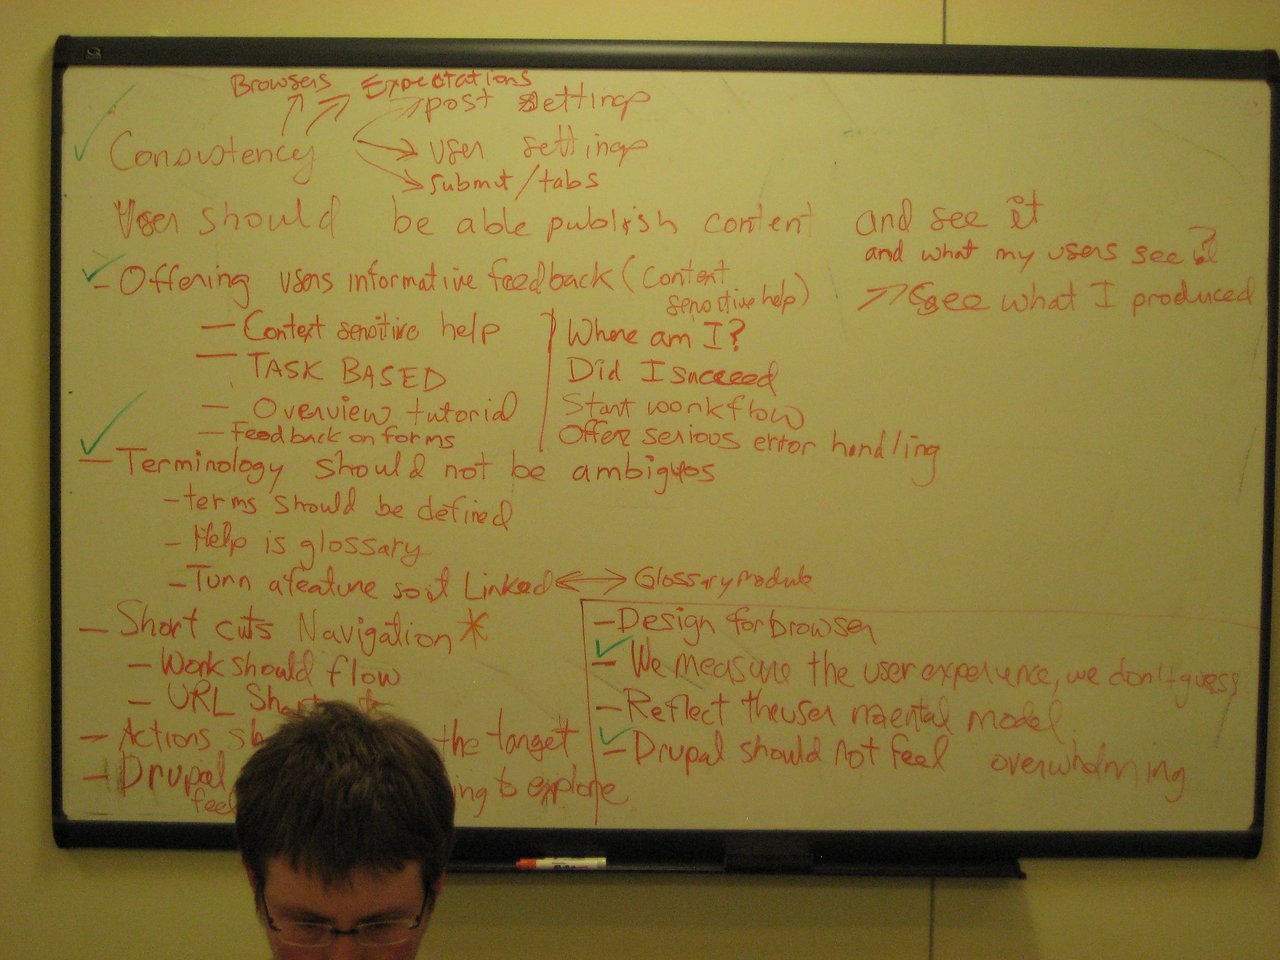 Browsers Expectations
post settings
Consistency
user settings
submit/tabs
User should be able publish content and see it
and what my users see?
- Offering users informative feedback (content sensitive help)
see what I produced
- Context sensitive help
Where am I?
- TASK BASED
Did I succeed
- Overview tutorial
Start workflow
- Feedback on forms
Offer serious error handling
- Terminology should not be ambiguos
- terms should be defined
- Help is glossary
- Turn a feature so it Linked
Glossary module
- Short cuts Navigation *
- Design for browser
- Work should flow
- We measure the user experience, we don't guess
- URL
- Reflect the user mental model
- Actions the target
- Drupal should not feel overwhelming
- Drupal to explore
feel